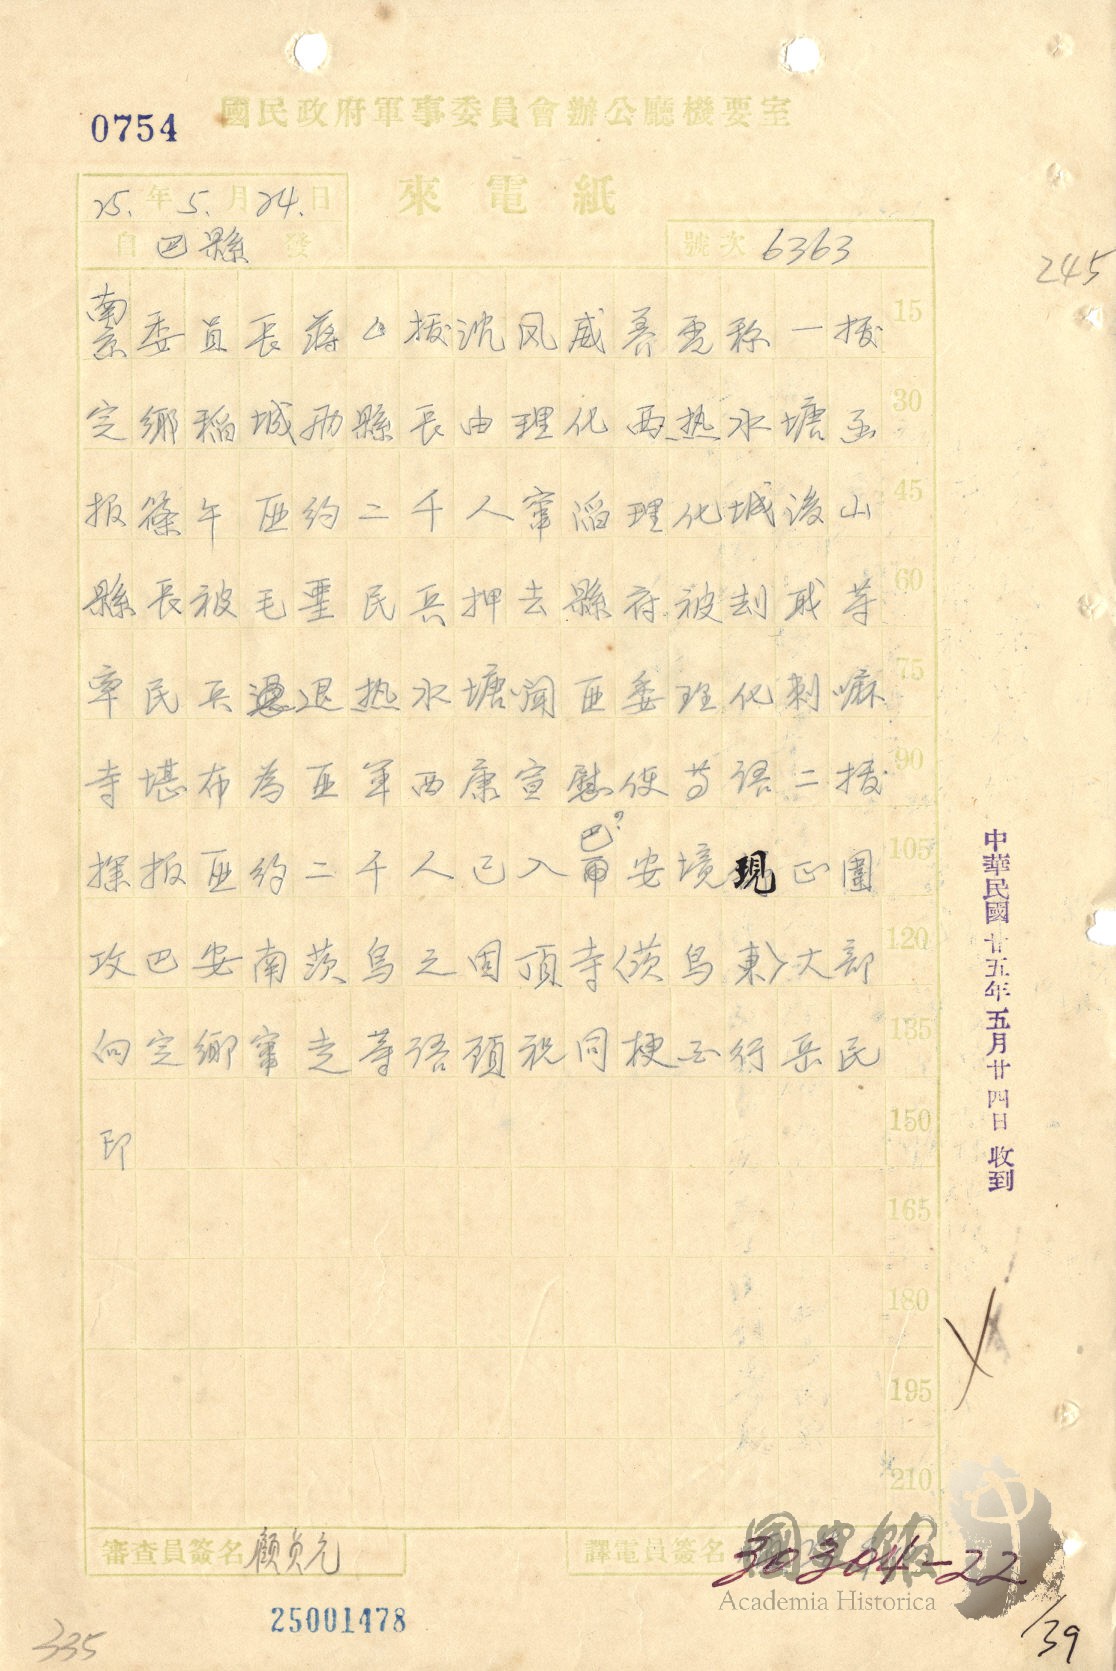 國民政府軍事委員會辦公廳機要室
0754
來電紙
25.年5.月24.日
自巴縣發
號次 6363
245
南京委員長蔣△援沈风威养電称一援 15
定鄉稻城两縣長由理化西热水塘函 30
报篠午匪约二千人窜滔理化城後山 45
縣長被毛垭民兵押去縣府被刦戢等 60
率民兵退热水塘闻匪委理化剌嘛 75
寺堪布為匪军西康宣慰使等语二援 90
探报匪约二千人已入巴?安境現正圍 105
攻巴安南茨烏之因頂寺(茨烏東)大部 120
向定鄉窜走等语顾祝同梗西行岳民 135
印 150
165
180
195
210
中華民國廿五年五月廿四日收到
審查員簽名 顧貞元
譯電員簽名
國史館
Academia Historica
30304-22
25001478
335
139